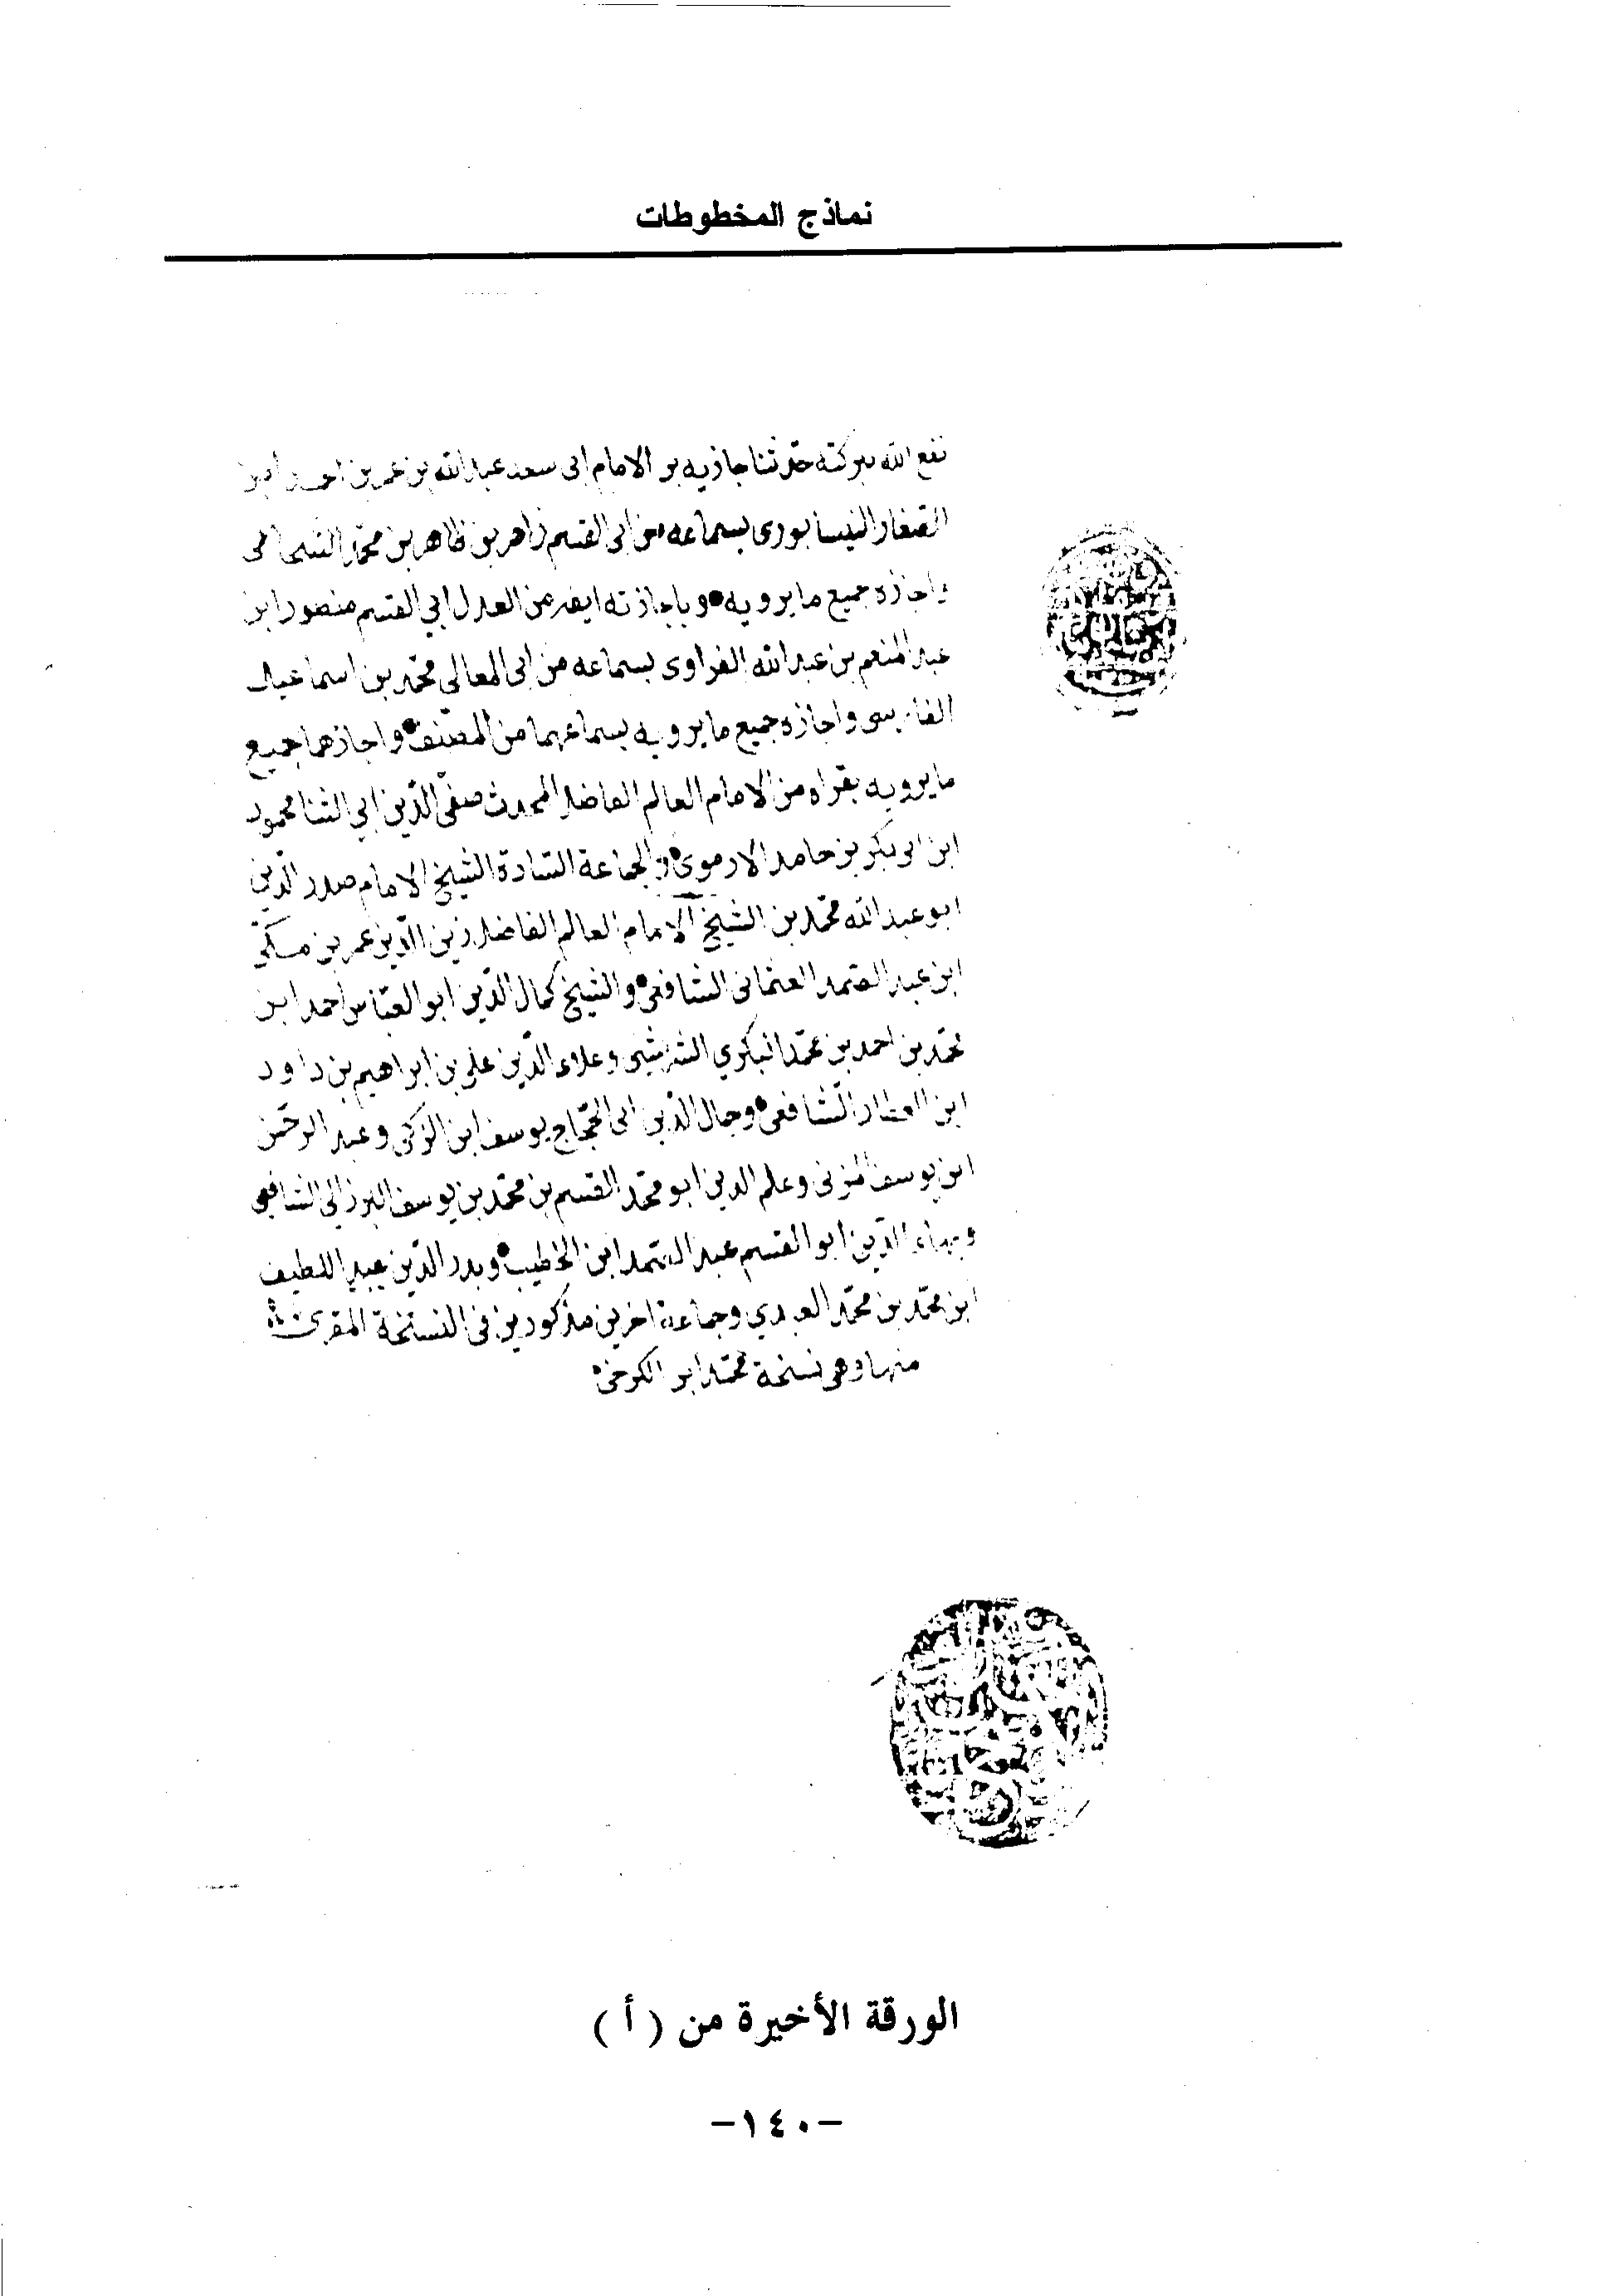 نماذج المخطوطات
نفع الله ببركته الامام ابى سعد عبد الله بن عمر بن احمد ابن
الصفار النيسابورى بسماعه من ابى القسم زاهر بن طاهر بن محمد الشحامى
واجازه جميع ما يرويه وباجازته ايضا من العدل ابي القسم منصور ابن
عبد المنعم بن عبد الله الفراوى بسماعه من ابى المعالي محمد بن اسماعيل
الفارسى واجازه جميع ما يرويه بسماعهما من المصنف واجازهما جميع
ما يرويه بقراه من الامام العالم الفاضل المحدث صفى الدين ابي الثنا محمود
ابن ابى بكر بن حامد الارموى والجماعة السادة الشيخ الامام صدر الدين
ابو عبد الله محمد بن الشيخ الامام العالم الفاضل زين الدين عمر بن مكى
ابن عبد الصمد العثمانى الشافعى والشيخ كمال الدين ابو العباس احمد ابن
محمد بن احمد بن محمد البكري الشريشى وعلاء الدين على بن ابراهيم بن داود
ابن العطار الشافعى وجمال الدين ابى الحجاج يوسف ابن الزكى وعبد الرحمن
ابن يوسف المزنى وعلم الدين ابو محمد القسم بن محمد بن يوسف البرزالي الشافعى
وبهاء الدين ابو القسم عبد الصمد ابن الخطيب وبدر الدين عبد اللطيف
ابن محمد بن محمد العبدي وجماعة اخرين مذكورين فى النسخة المقرئ
منها وهى نسخة محمد ابن الكرخى
الورقة الأخيرة من ( أ )
-١٤٠-